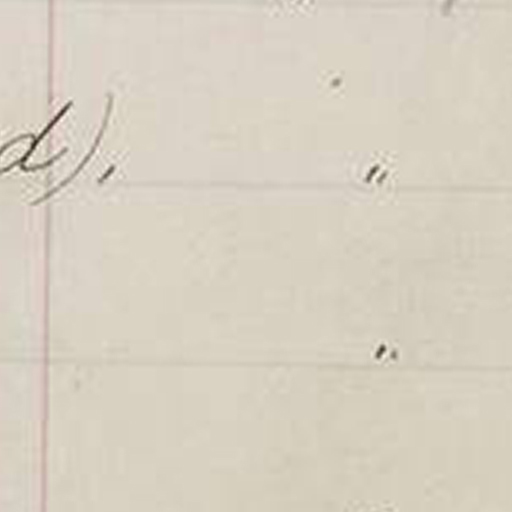 d), "
"